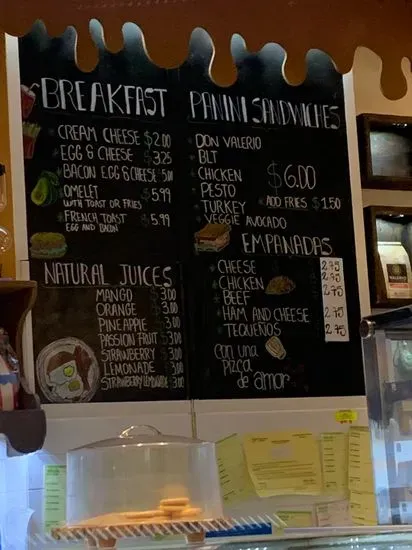 BREAKFAST
CREAM CHEESE $2.00
EGG & CHEESE $3.25
BACON EGG & CHEESE 5.01
OMELET $5.99
WITH TOAST OR FRIES
FRENCH TOAST $5.99
EGG AND BACON
NATURAL JUICES
MANGO $3.00
ORANGE $3.00
PINEAPPLE $3.00
PASSION FRUIT $3.00
STRAWBERRY $3.00
LEMONADE $3.00
STRAWBERRY LEMONADE $3.00
PANINI SANDWICHES
DON VALERIO
BLT
CHICKEN
PESTO
TURKEY
VEGGIE AVOCADO
$6.00
ADD FRIES $1.50
EMPANADAS
CHEESE 2.75
CHICKEN 2.95
BEEF 2.75
HAM AND CHEESE 2.75
TEQUEÑOS 2.75
con una
pizca
de amor